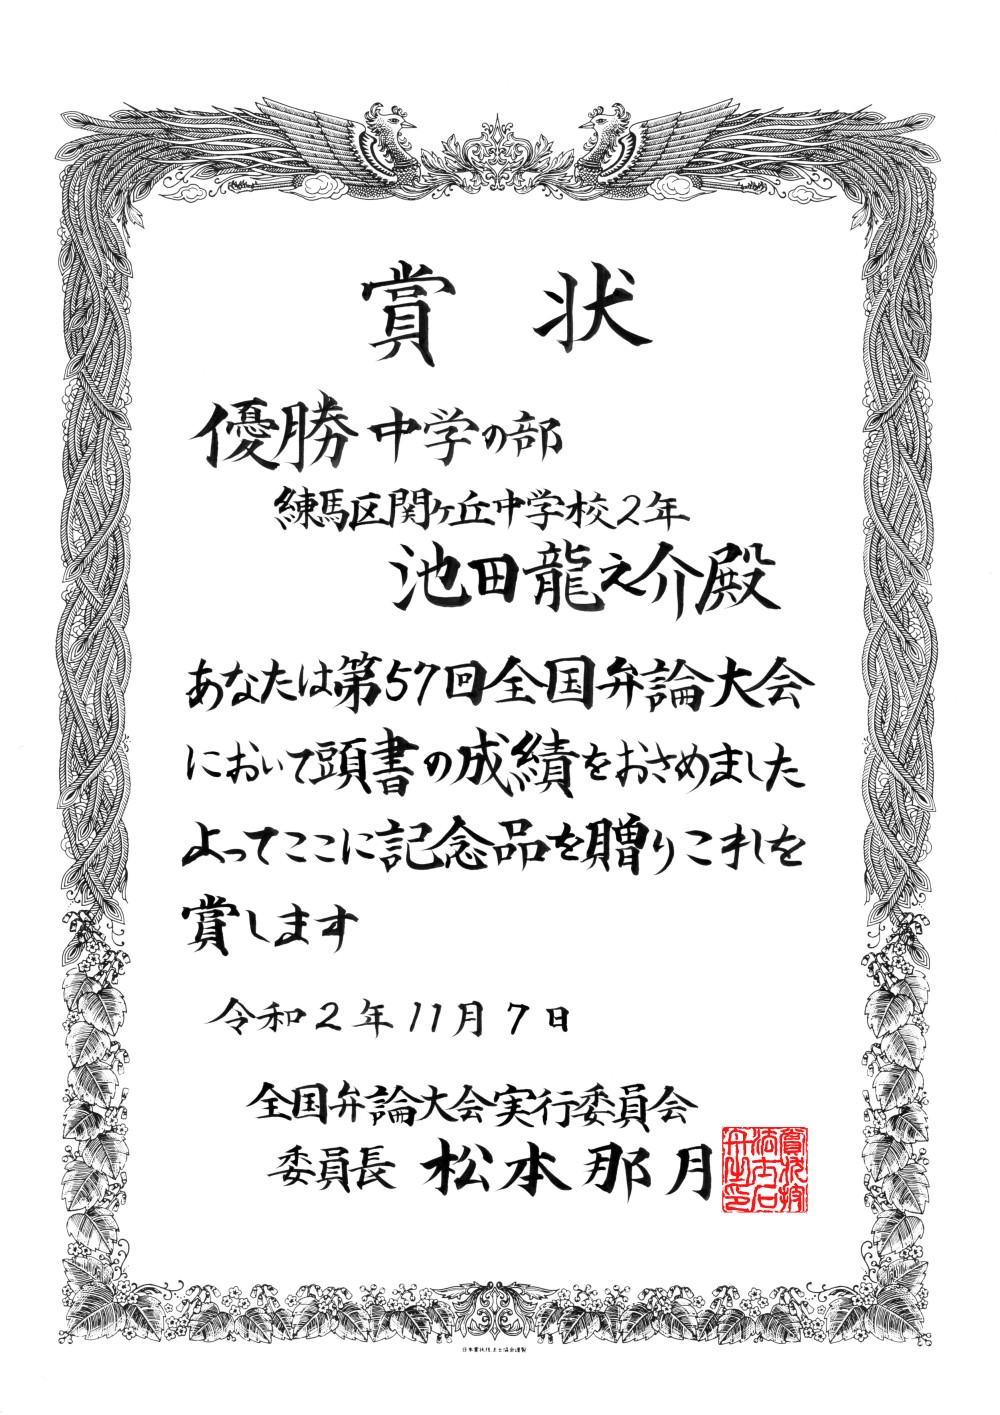 賞状
優勝 中学の部
練馬区関ヶ丘中学校2年
池田龍之介殿
あなたは第57回全国弁論大会
において頭書の成績をおさめました
よってここに記念品を贈りこれを
賞します
令和2年11月7日
全国弁論大会実行委員会
委員長 松本那月